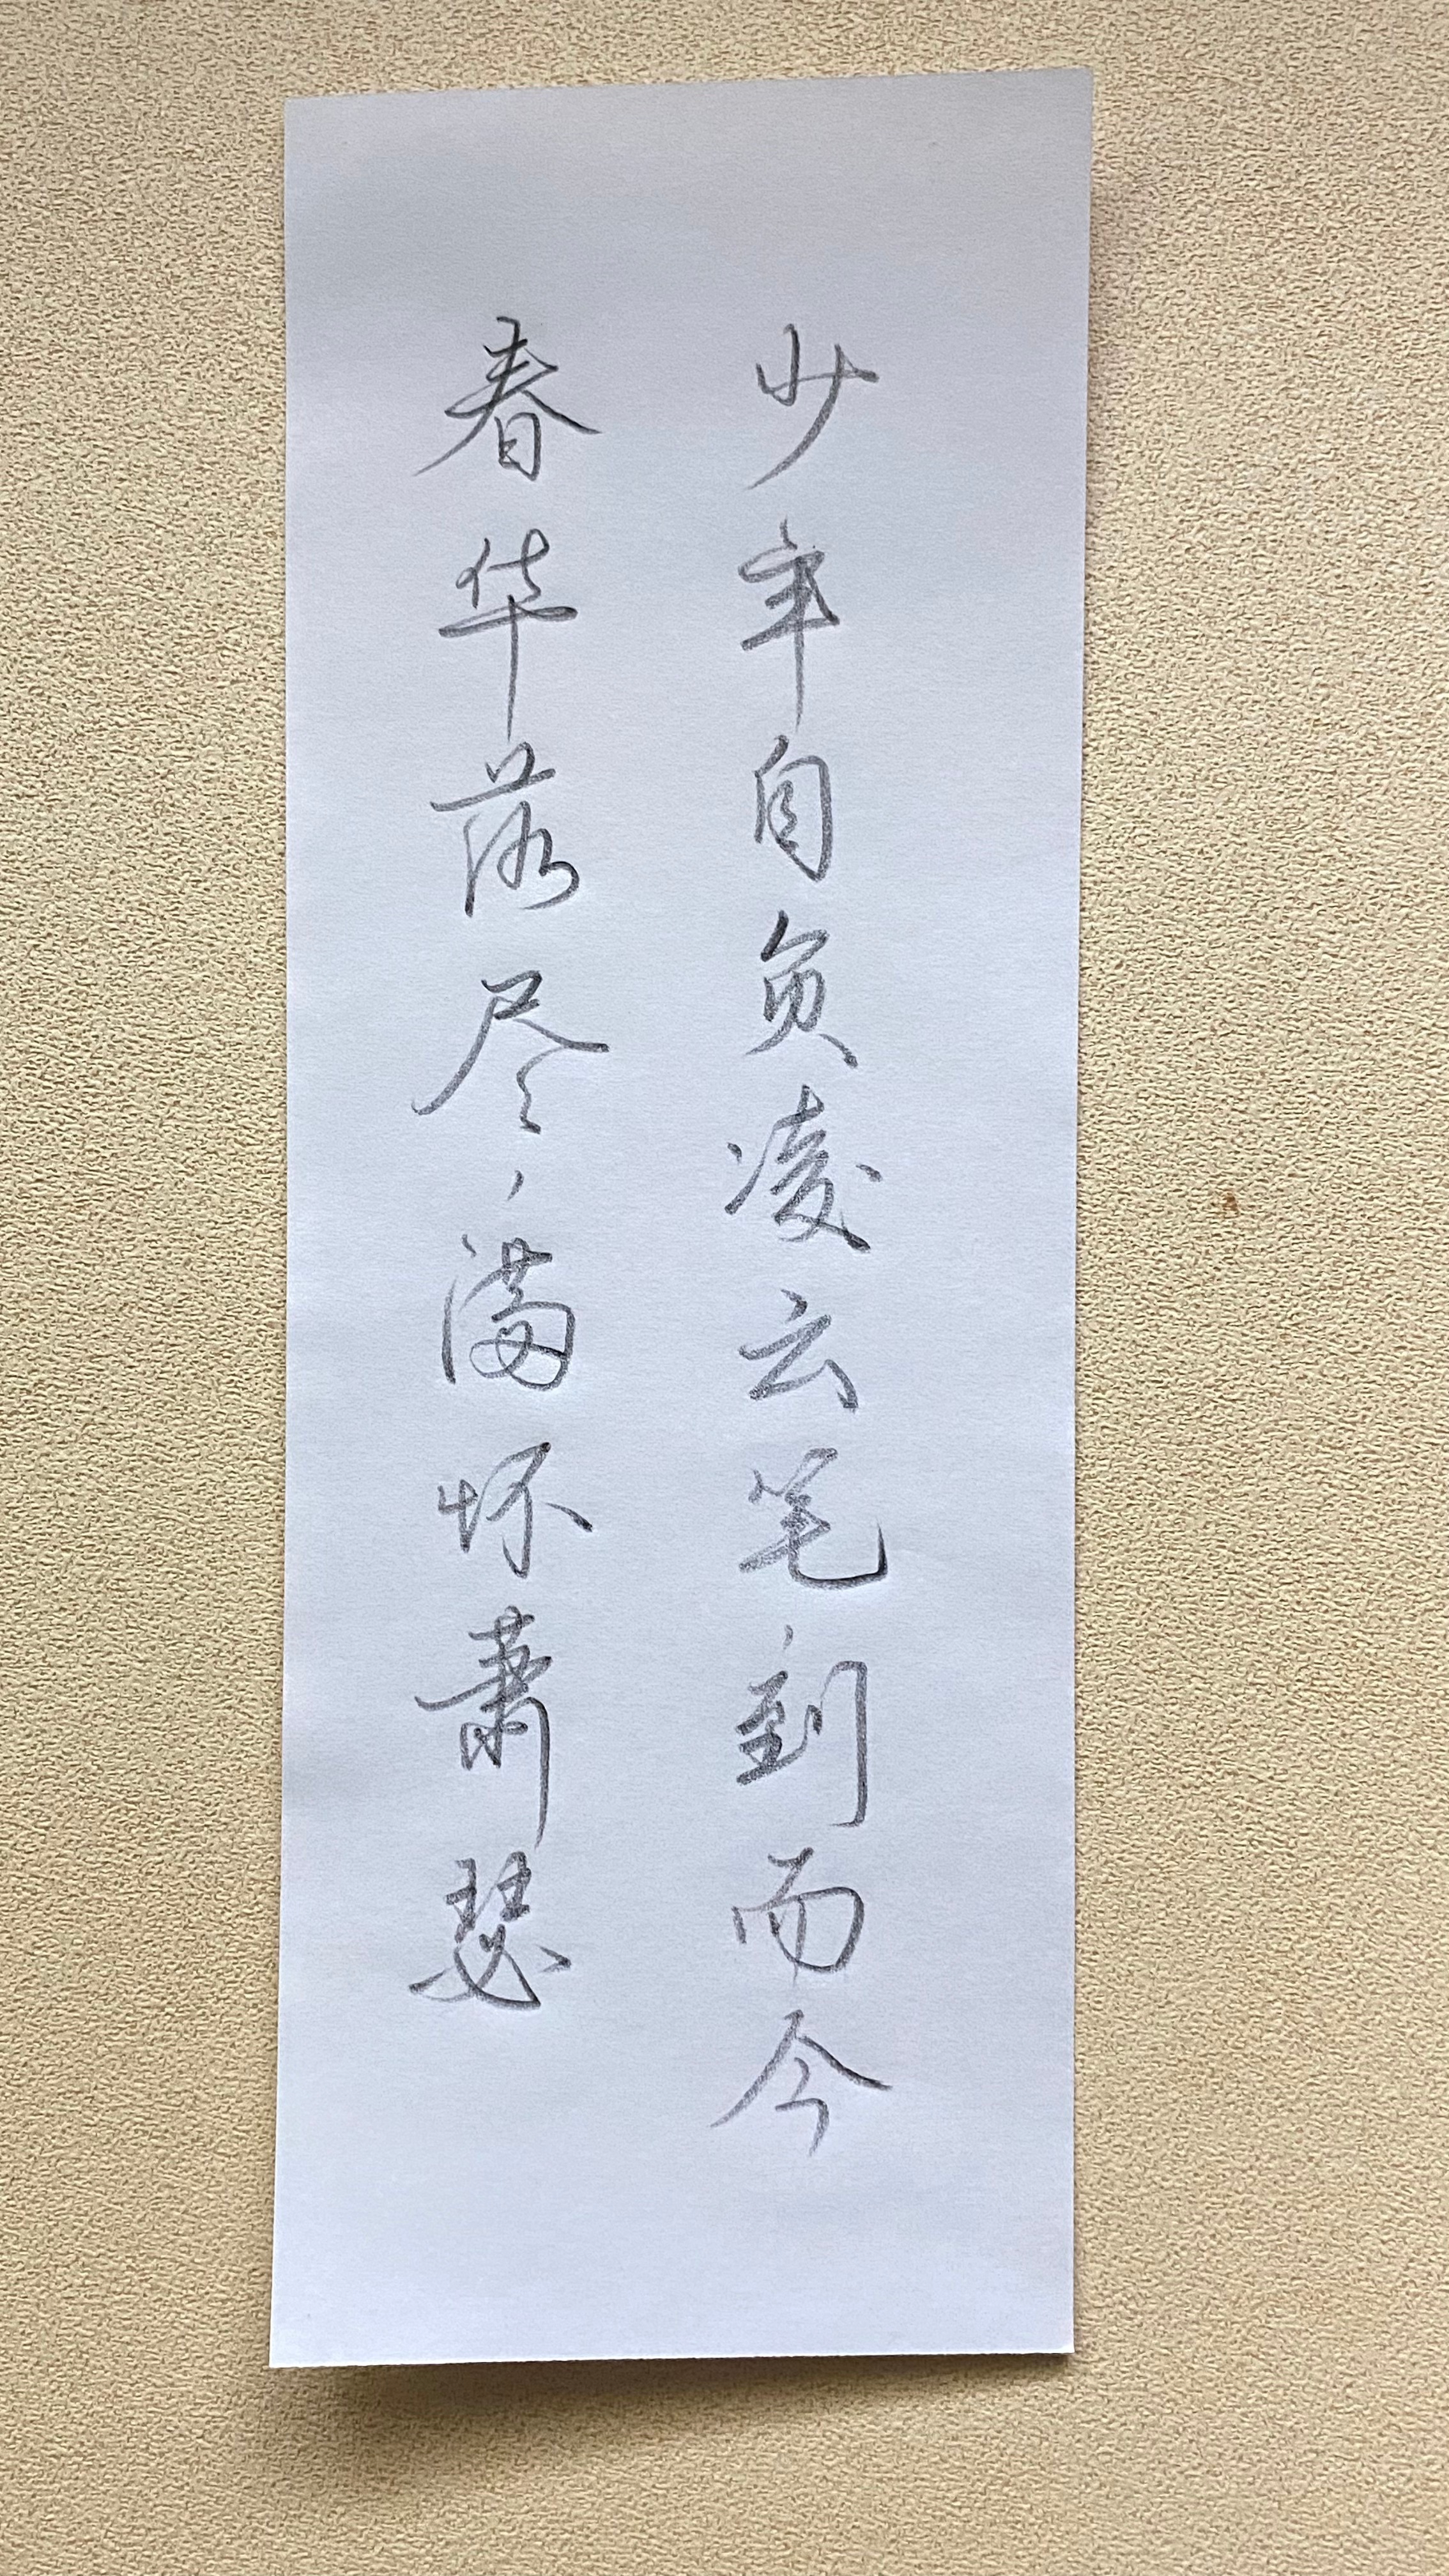 少年自负凌云笔到而今
春华落尽，满怀萧瑟